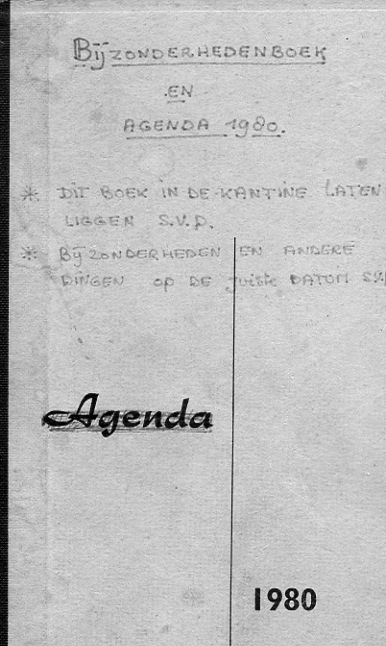 BIJZONDERHEDENBOEK
EN
AGENDA 1980.
* DIT BOEK IN DE KANTINE LATEN
LIGGEN S.V.P.
* BIJZONDERHEDEN EN ANDERE
DINGEN OP DE juiste DATUM S.V.P
Agenda
1980